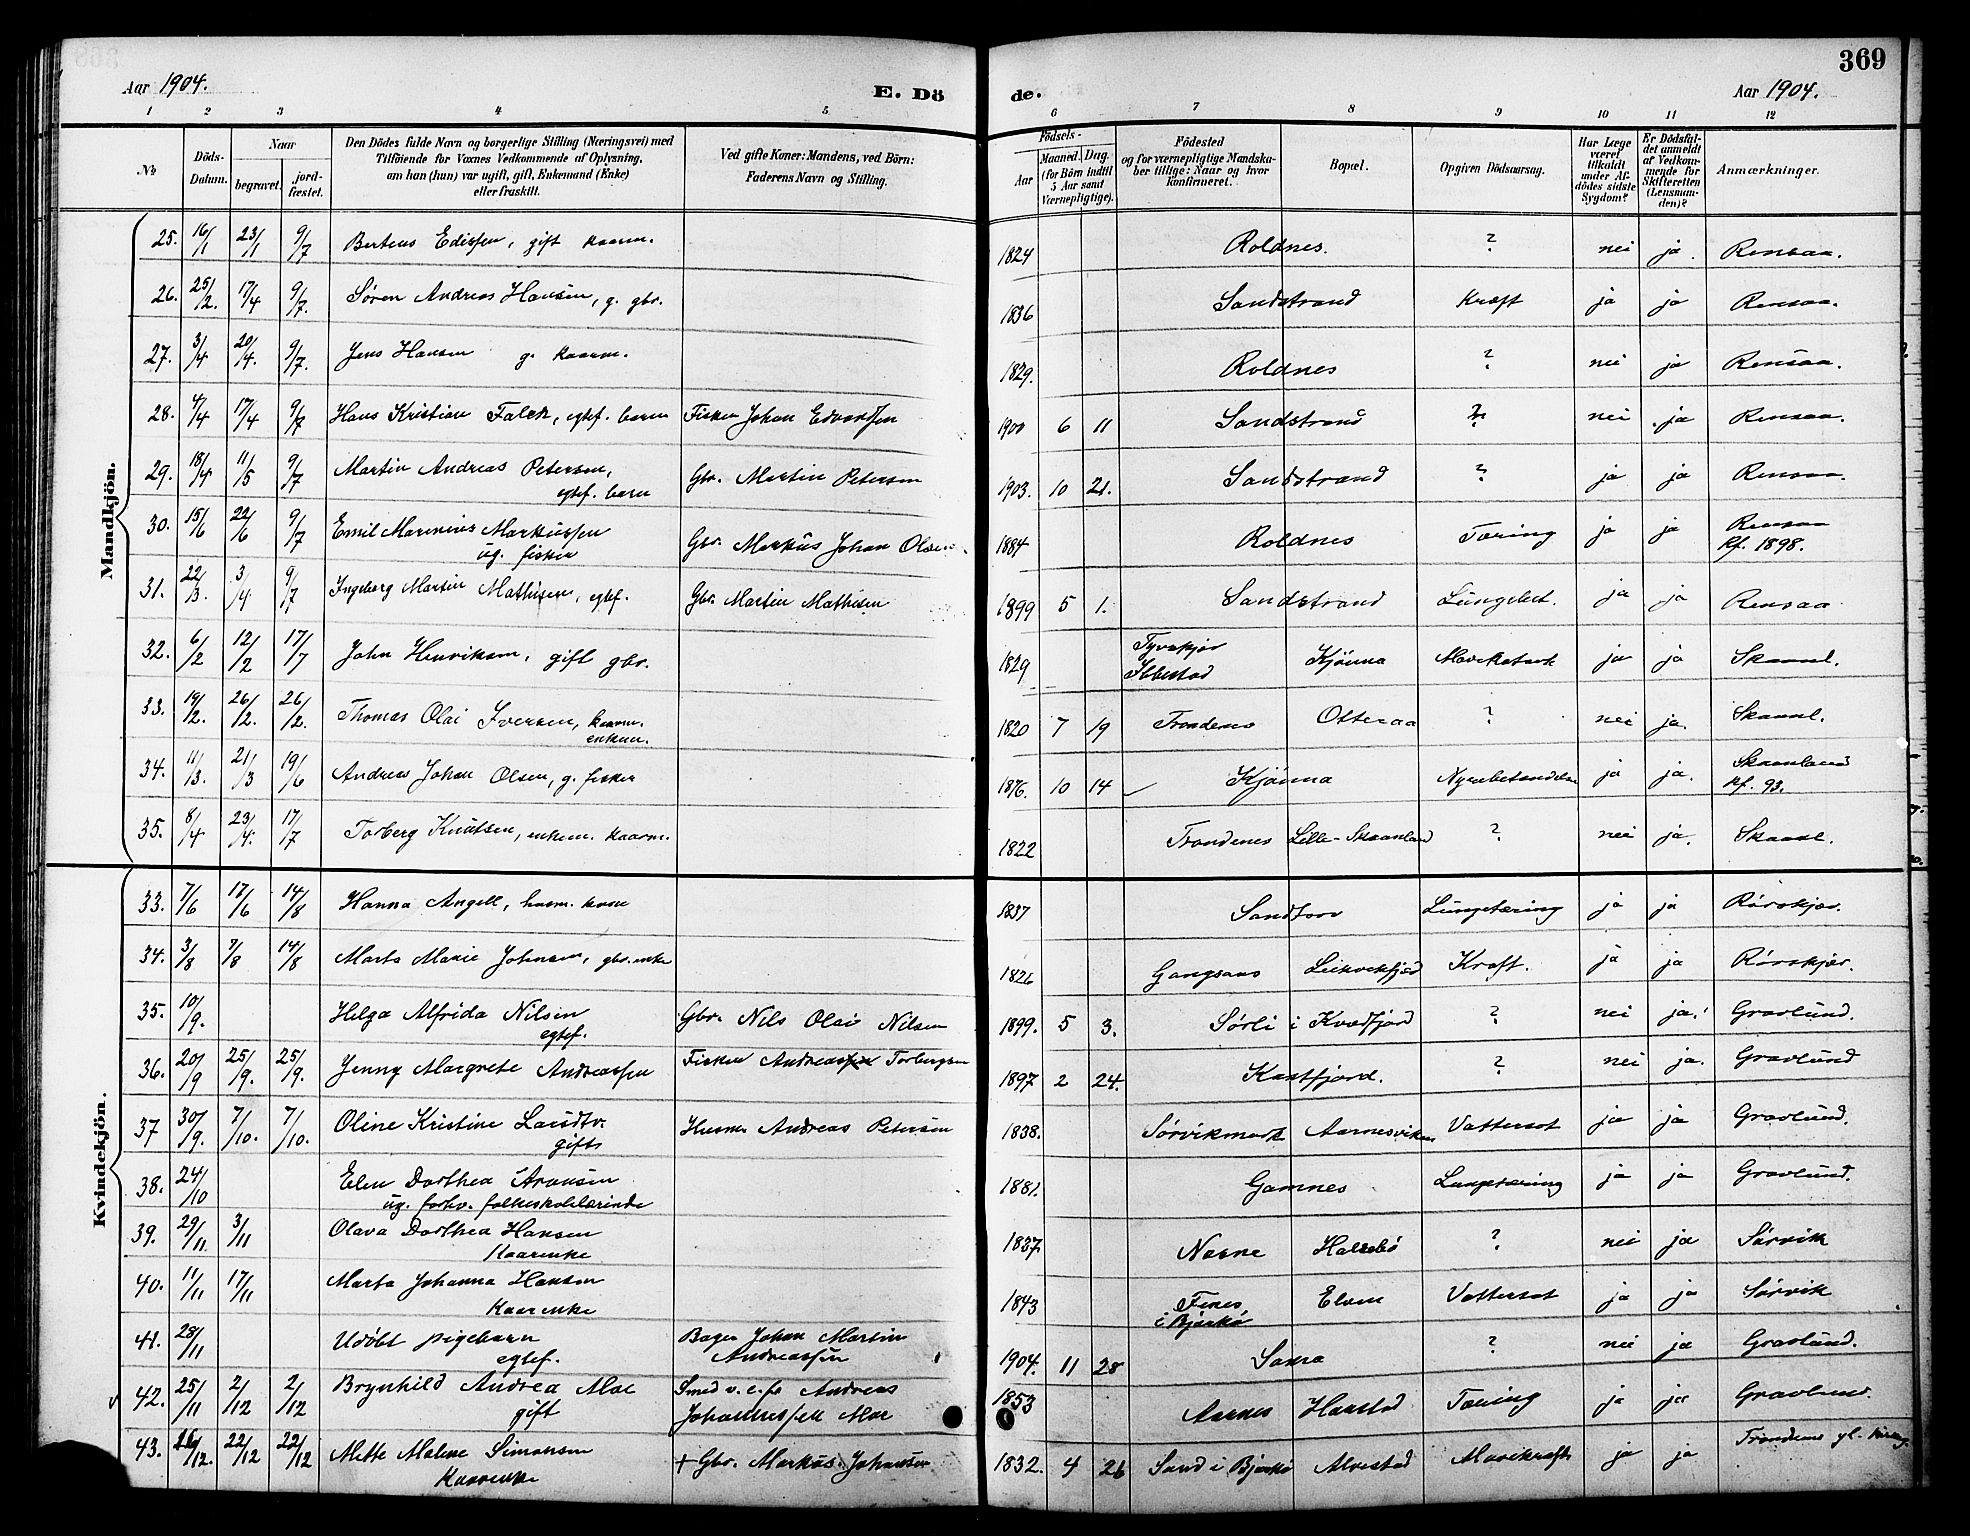 369
Aar 1904.
E. Döde.
Aar 1904.
1 2 3 4 5 6 7 8 9 10 11 12
No
Döds-Datum.
Naar
begravet.
jord-fæstet.
Den Dödes fulde Navn og borgerlige Stilling (Næringsvei) med
Tilföiende for Voxnes Vedkommende af Oplysning,
om han (hun) var ugift, gift, Enkemand (Enke)
eller fraskilt.
Ved gifte Koner: Mandens, ved Börn:
Faderens Navn og Stilling.
Födsels-
Aar
Maaned. Dag.
(for Börn indtil
5 Aar samt
Værnepligtige).
Födested
og for værnepligtige Mandska-
ber tillige: Naar og hvor
konfirmeret.
Bopæl.
Opgiven Dödsaarsag.
Har Læge
været
tilkaldt
under Af-
dödes sidste
Sygdom?
Er Dödsfal-
det anmeldt
af Vedkom-
mende for
Skifteretten
(Lensman-
den)?
Anmærkninger.
Mandkjön.
25. 16/1 23/1 9/7 Berteus Edissen, gift kaarm. 1824 Roldnes. ? nei ja. Rensaa.
26. 25/2. 17/4 9/7. Søren Andreas Hansen, g. gbr. 1836 Sandstrand Kræft ja ja Rensaa.
27. 3/4 20/4. 9/7. Jens Hansen g. kaarm. 1829. Roldnes ? nei ja Rensaa.
28. 4/4 17/4 9/7 Hans Kristian Falck, egtef. barn Fisker Johan Edvardsen 1900 6 11 Sandstrand ? nei ja Rensaa.
29. 18/4 11/5 9/7 Martin Andreas Petersen, egtef. barn Gbr. Martin Petersen 1903. 10 21. Sandstrand ? ja ja Rensaa
30. 15/6 22/6 9/7 Emil Marenius Markussen ug. fisker Gbr. Markus Johan Olsen. 1884 Roldnes Tæring ja ja Rensaa kf. 1898.
31. 22/3. 3/4 9/7 Ingeborg Martin Mathisen, egtef. Gbr. Martin Mathisen 1899 5 1. Sandstrand Lungebet. ja ja Rensaa
32. 6/2 12/2 17/7 John Henriksen, gift gbr. 1829 Ibbestad Kjönna ja ja Skaanl.
33. 19/2. 26/2. 26/2. Thomas Olai Iversen, kaarm. enkem. 1820 7 19 Trondenes Otteraa ? nei ja. Skaanl.
34. 11/3. 21/3 19/6 Andreas Johan Olsen, g. fisker 1876. 10 14 Kjönna Nyrebetændelse ja ja. Skaanland kf. 93.
35. 8/4 23/4. 17/7 Torberg Knutsen, enkem. kaarm. 1822 Trondenes Lille-Skaanland ? nei ja. Skaanl.
Kvindekjön.
33. 7/6 17/6 14/8 Hanna Angell, husm. kone 1837 Sandtorv Lungetæring ja ja Rörskjær.
34. 3/8 7/8 14/8 Marta Marie Johnsen, gbr. enke 1826 Gangsaas Kræft. ja ja Rörskjær.
35. 10/9. Helga Alfrida Nilsen egtef. Gbr. Nils Olai Nilsen 1899. 5 3. Sörli i Kvæfjord ? nei ja. Gravlund.
36. 20/9 25/9. 25/9. Jenny Margrete Andreassen Fisker Andreas Torbergsen 1897 2 24. Kastfjord. ? nei ja. Gravlund
37 30/9. 7/10. 7/10. Oline Kristine Larsdtr. gift Husm. Andreas Petersen 1838. Sörvikmark Aarnesviken Vattersot ja ja Gravlund.
38. 24/10 Elen Dorthea Aronsen ug. forhv. folkeskolelærinde 1881. Gamnes Lungetæring ja ja Gravlund.
39. 29/11. 3/11 Olava Dorthea Hansen Kaarenke 1837. Nesne Halsebö ? nei ja Sörvik
40. 11/11 17/11 Marta Johanna Hansen Kaarenke 1843 Fenes i Bjarkö Elven Vattersot ja ja Sörvik
41. 28/11 Udöbt pigebarn egtef. Bager Johan Martin Andreassen 1904. 11 28 Sama ? nei ja Gravlund.
42. 25/11 2/12 2/12 Brynhild Andrea Moe gift Smed Andreas Johannessen Moe 1853 Aarnes Harstad Tæring ja ja Gravlund.
43. 16/12. 22/12 22/12 Mette Malene Simonsen Kaarenke + Gbr. Markus Johansen 1832. 4 26 Sand i Bjarkö Alvestad Mavekræft ja ja Trondenes gl.